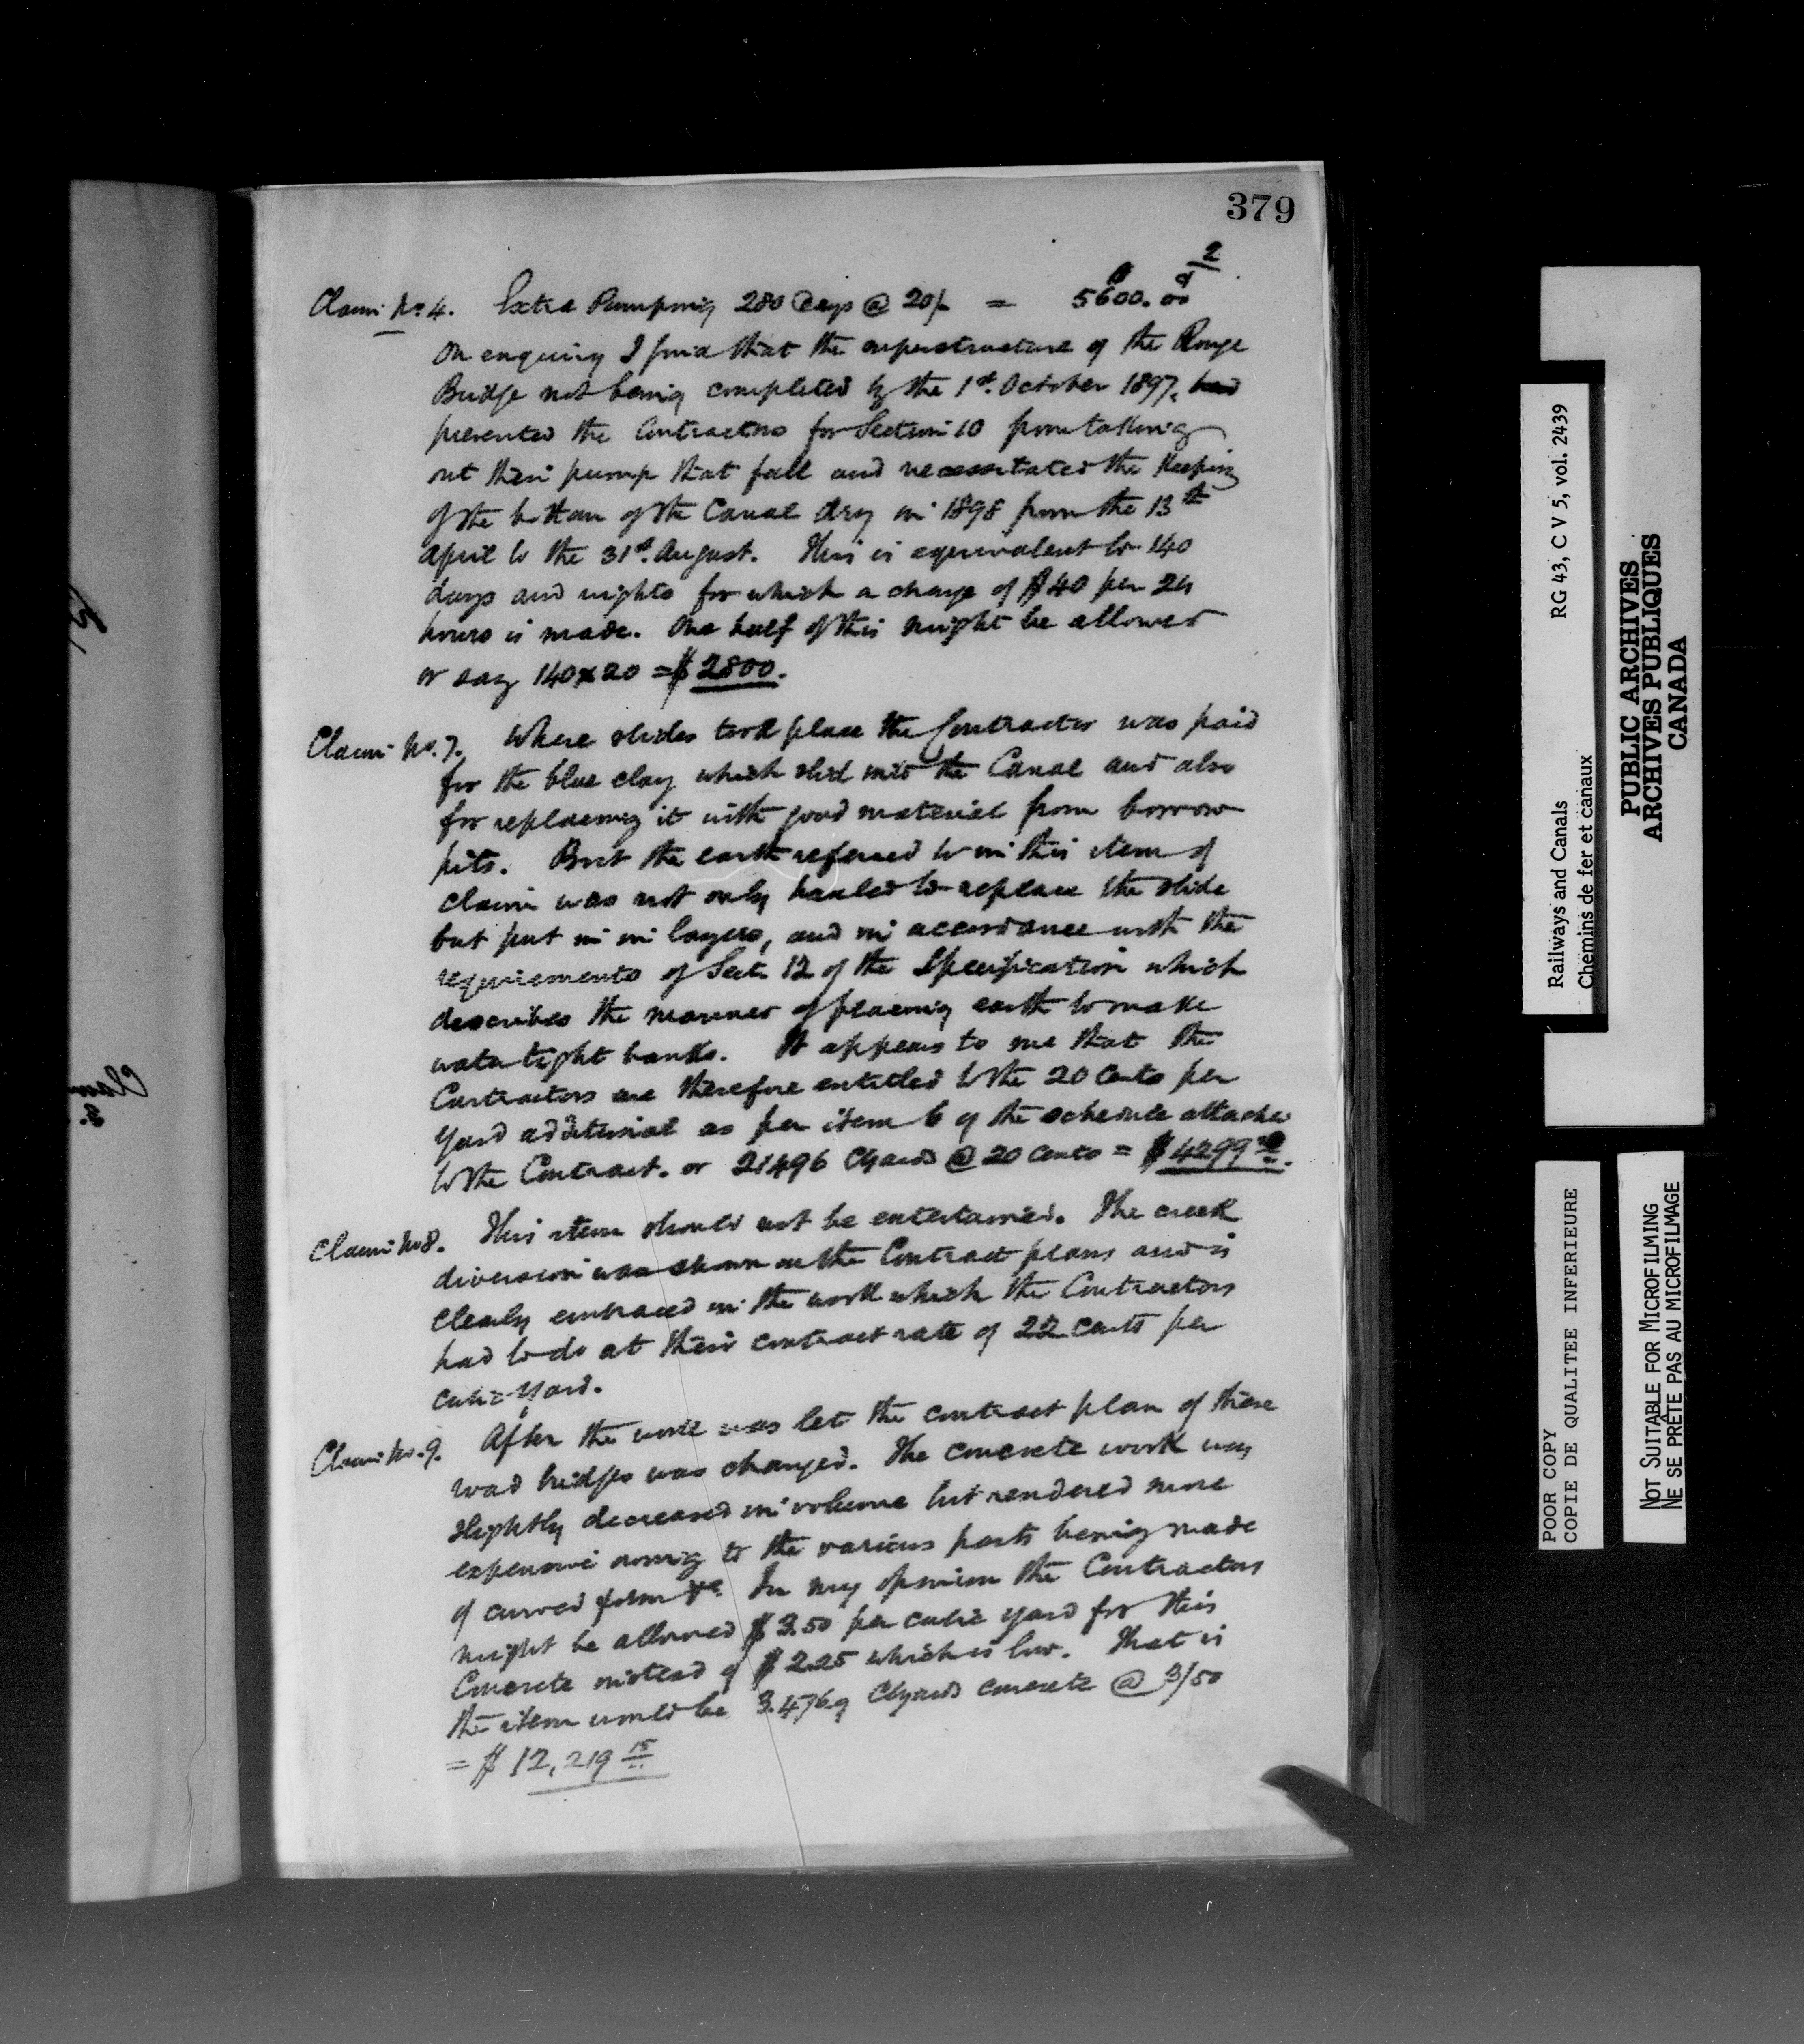 379
2
Claim No. 4. Extra Pumping 280 days @ 20/- = $5600.00
On enquiry I find that the superstructure of the Rouge
Bridge not being completed by the 1st. October 1897,
prevented the Contractors for Section 10 from taking
out their pump that fall and necessitated the keeping
of the bottom of the Canal dry in 1898 from the 13th
April to the 31st. August. This is equivalent to 140
days and nights for which a charge of $40 per 24
hours is made. One half of this might be allowed
or say 140 x 20 = $2800.
Claim No. 7. Where slides took place the Contractor was paid
for the blue clay which slid into the Canal and also
for replacing it with good material from borrow
pits. But the earth referred to in this item of
claim was not only hauled to replace the slide
but put in in layers, and in accordance with the
requirements of Sect. 12 of the Specification which
describes the manner of placing earth to make
water tight banks. It appears to me that the
Contractors are therefore entitled to the 20 cents per
yard additional as per item 6 of the schedule attached
to the Contract. or 21496 Cyards @ 20 cents = $4299
Claim No 8. This item should not be entertained. The creek
diversion was shown on the Contract plans and is
clearly embraced in the work which the Contractors
had to do at their contract rate of 22 cents per
cubic yard.
Claim No. 9. After the work was let the contract plan of these
road bridges was changed. The concrete work was
slightly decreased in volume but rendered more
expensive owing to the various parts being made
of curved form &c. In my opinion the Contractors
might be allowed $3.50 per cubic yard for this
Concrete instead of $2.25 which is low. That is
the item would be 3.476.9 Cyards concrete @ 3/50
= $12,219 15
Railways and Canals RG 43, C V 5, vol. 2439
Chemins de fer et canaux
PUBLIC ARCHIVES
ARCHIVES PUBLIQUES
CANADA
POOR COPY
COPIE DE QUALITEE INFERIEURE
NOT SUITABLE FOR MICROFILMING
NE SE PRÊTE PAS AU MICROFILMAGE